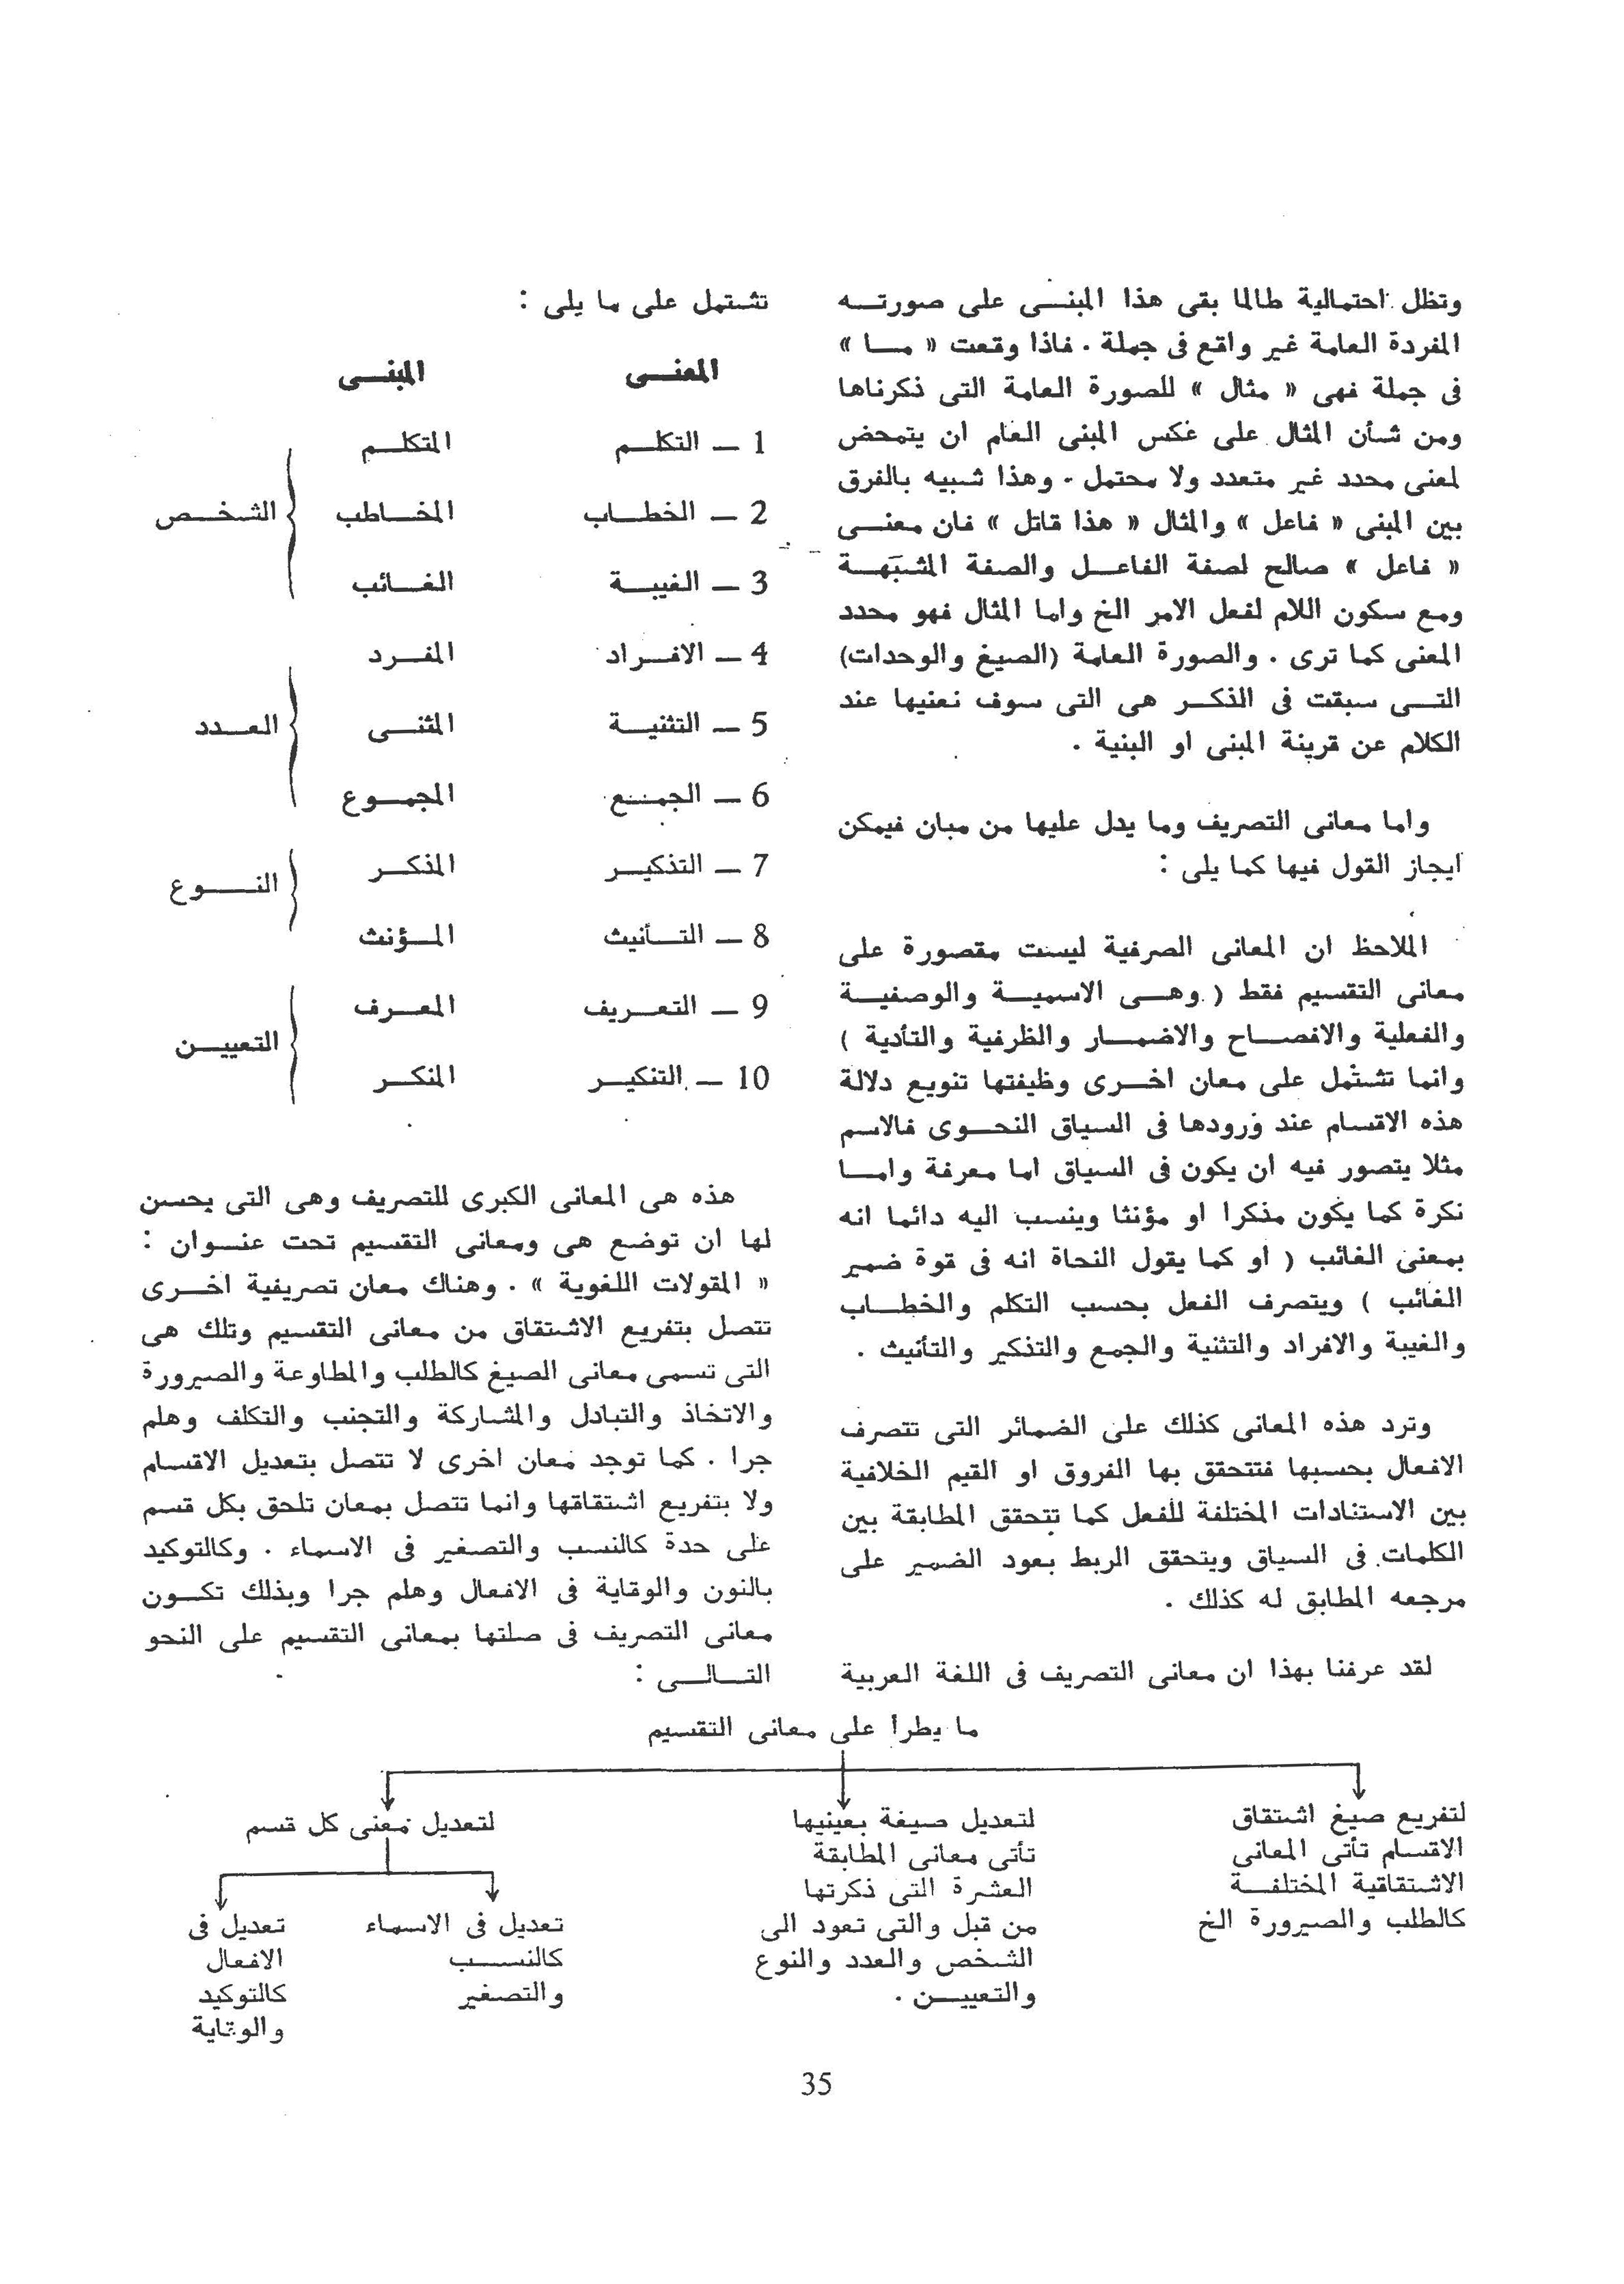 وتظل احتمالية طالما بقى هذا المبنــى على صورتــه
المفردة العامة غير واقع فى جملة . فاذا وقعت « مــا »
فى جملة فهى « مثال » للصورة العامة التى ذكرناها
ومن شأن المثال على عكس المبنى العام ان يتمحض
لمعنى محدد غير متعدد ولا محتمل . وهذا شبيه بالفرق
بين المبنى « فاعل » والمثال « هذا قاتل » فان معنــى
« فاعل » صالح لصفة الفاعــل والصفة المشبَهــة
ومع سكون اللام لفعل الامر الخ واما المثال فهو محدد
المعنى كما ترى . والصورة العامة (الصيغ والوحدات)
التــى سبقت فى الذكــر هى التى سوف نعنيها عند
الكلام عن قرينة المبنى او البنية .
واما معانى التصريف وما يدل عليها من مبان فيمكن
ايجاز القول فيها كما يلى :
الملاحظ ان المعانى الصرفية ليست مقصورة على
معانى التقسيم فقط ( وهــى الاسميــة والوصفيــة
والفعلية والافصــاح والاضمــار والظرفية والتأدية )
وانما تشتمل على معان اخــرى وظيفتها تنويع دلالة
هذه الاقسام عند ورودها فى السياق النحــوى فالاسم
مثلا يتصور فيه ان يكون فى السياق اما معرفة وامــا
نكرة كما يكون مذكرا او مؤنثا وينسب اليه دائما انه
بمعنى الغائب ( او كما يقول النحاة انه فى قوة ضمير
الغائب ) ويتصرف الفعل بحسب التكلم والخطــاب
والغيبة والافراد والتثنية والجمع والتذكير والتأنيث .
وترد هذه المعانى كذلك على الضمائر التى تتصرف
الافعال بحسبها فتتحقق بها الفروق او القيم الخلافية
بين الاستنادات المختلفة للفعل كما تتحقق المطابقة بين
الكلمات فى السياق ويتحقق الربط بعود الضمير على
مرجعه المطابق له كذلك .
لقد عرفنا بهذا ان معانى التصريف فى اللغة العربية
تشتمل على ما يلى :
المعنــى المبنــى
1 ــ التكلــم المتكلــم
2 ــ الخطــاب المخــاطب الشخــص
3 ــ الغيبــة الغــائب
4 ــ الافــراد المفــرد
5 ــ التثنيــة المثنــى العــدد
6 ــ الجمــع المجمــوع
7 ــ التذكيــر المذكــر
النــوع
8 ــ التــأنيث المــؤنث
9 ــ التعــريف المعــرف
التعييــن
10 ــ التنكيــر المنكــر
هذه هى المعانى الكبرى للتصريف وهى التى يحسن
لها ان توضع هى ومعانى التقسيم تحت عنــوان :
« المقولات اللغوية » . وهناك معان تصريفية اخــرى
تتصل بتفريع الاشتقاق من معانى التقسيم وتلك هى
التى تسمى معانى الصيغ كالطلب والمطاوعة والصيرورة
والاتخاذ والتبادل والمشاركة والتجنب والتكلف وهلم
جرا . كما توجد معان اخرى لا تتصل بتعديل الاقسام
ولا بتفريع اشتقاقها وانما تتصل بمعان تلحق بكل قسم
على حدة كالنسب والتصغير فى الاسماء . وكالتوكيد
بالنون والوقاية فى الافعال وهلم جرا وبذلك تكــون
معانى التصريف فى صلتها بمعانى التقسيم على النحو
التــالــى :
ما يطرأ على معانى التقسيم
لتفريع صيغ اشتقاق
الاقسام تأتى المعانى
الاشتقاقية المختلفــة
كالطلب والصيرورة الخ
لتعديل صيغة بعينيها
تأتى معانى المطابقة
العشرة التى ذكرتها
من قبل والتى تعود الى
الشخص والعدد والنوع
والتعييــن .
لتعديل معنى كل قسم
تعديل فى الاسماء
كالنســب
والتصغير
تعديل فى
الافعال
كالتوكيد
والوقاية
35